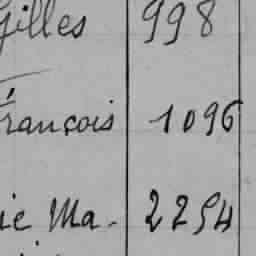 Gilles 998
François 1096
ie Ma. 2254